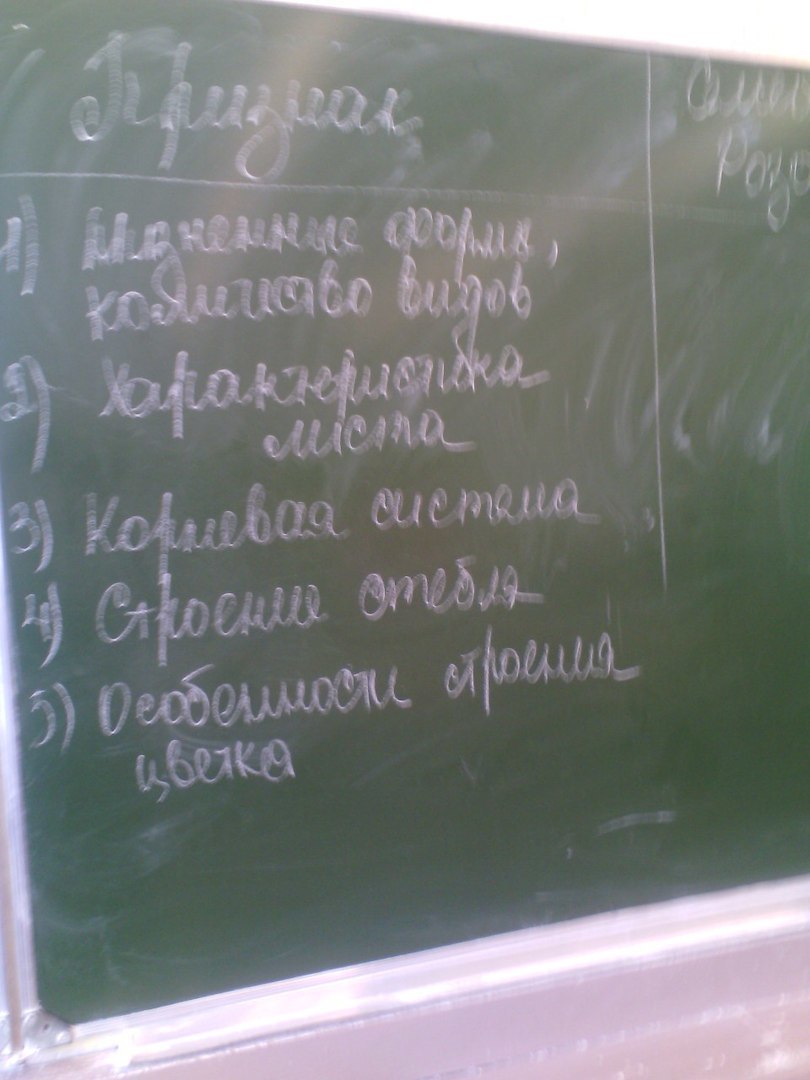 Признак
Семе
Розо
1) жизненные формы,
количество видов
2) Характеристика
листа
3) Корневая система
4) Строение стебля
5) Особенности строения
цветка